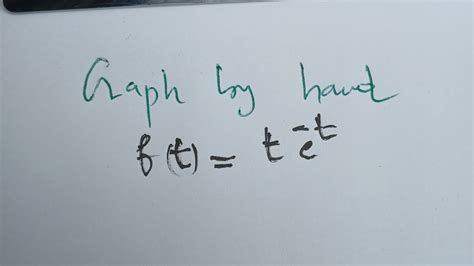 Graph by hand
f(t) = t e^-t